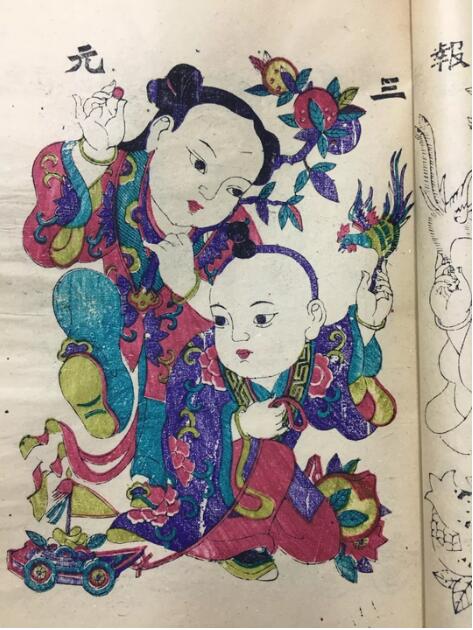 三元
報